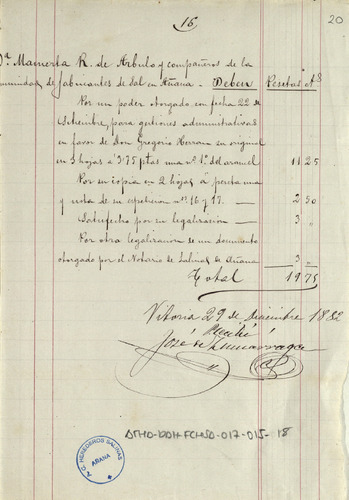 16
20
Dª. Mamerta R. de Arbulo y compañeros de la
comunidad de fabricantes de Sal en Añana. Deben Pesetas Cs
Por un poder otorgado con fecha 22 de
Setiembre, para gestiones administrativas
en favor de Don Gregorio Herran su original
en 3 hojas á 3'75 ptas una nº 1º del arancel 11 25
Por su copia en 2 hojas á peseta una
y nota de su expedicion nºs 16 y 17. 2 50
Satisfecho por su legalizacion 3 "
Por otra legalizacion de un documento
otorgado por el Notario de Salinas de Añana 3 "
Total 19 75
Vitoria 29 de Diciembre 1882
Recibí
José de
ATHA-DAH-FCHSD-017-015-18
C. G. HEREDEROS SALINAS
AÑANA